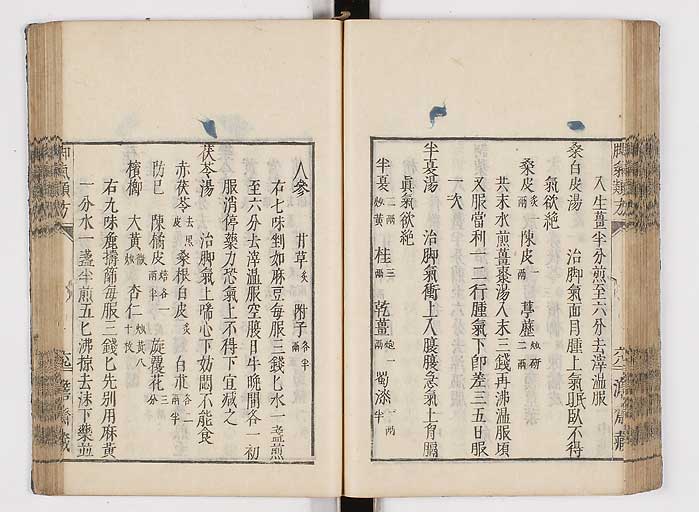 入生薑半分煎至六分去滓溫服
桑白皮湯　治脚氣面目腫上氣眠臥不得
氣欲絕
桑皮 炙一兩　陳皮 一兩　葶藶 炒研二兩
共末水煎薑棗湯入末三錢再沸溫服頃
又服當利一二行腫氣下卽差三五日服
一次
半夏湯　治脚氣衝上入腹腹急氣上胷膈
眞氣欲絕
半夏 二兩炒黃　桂 三兩　乾薑 炮一兩　蜀漆 一兩半
人參　甘草 炙　附子 各半兩
右七味剉如麻豆每服三錢匕水一盞煎
至六分去滓溫服空腹日午晚間各一初
服消停藥力恐氣上不得下宜減之
茯苓湯　治脚氣上喘心下妨悶不能食
赤茯苓 去黑皮　桑根白皮 炙　白朮 各二兩半
防巳　陳橘皮 焙各一兩半　旋覆花 三分
檳榔　大黃 微炒　杏仁 炒黃八十枚
右九味麁擣篩每服三錢匕先別用麻黃
一分水一盞半煎五七沸掠去沫下藥並
脚氣類方